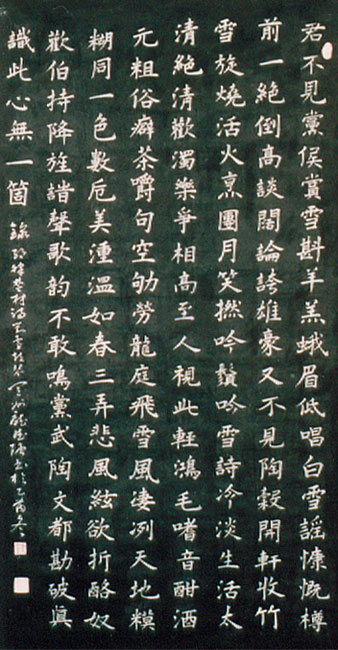 君不見黨侯賞雪斟羊羔蛾眉低唱白雪謠慷慨樽
前一絕倒高談闊論誇雄豪又不見陶穀開軒收竹
雪旋燒活火烹團月笑撚吟鬚吟雪詩冷淡生活太
清絕清歡濁樂爭相高至人視此輕鴻毛嗜音酣酒
元粗俗癖茶爵句空劬勞龍庭飛雪風凄冽天地糢
糊同一色數卮美湩溫如春三弄悲風絃欲折酪奴
歡伯持降旌諧聲歌韵不敢鳴黨武陶文都勘破眞
識此心無一箇 錄耶律楚材詩